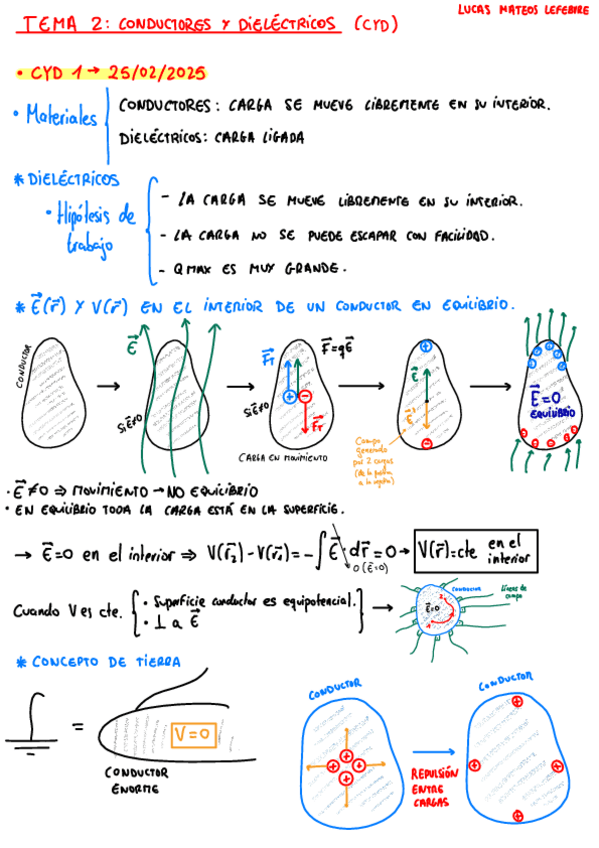 LUCAS MATEOS LEFEBRE
TEMA 2: CONDUCTORES Y DIELÉCTRICOS (CYD)
• CYD 1 → 25/02/2025
• Materiales
CONDUCTORES: CARGA SE MUEVE LIBREMENTE EN SU INTERIOR.
DIELÉCTRICOS: CARGA LIGADA
* DIELÉCTRICOS
• Hipótesis de trabajo
- LA CARGA SE MUEVE LIBREMENTE EN SU INTERIOR.
- LA CARGA NO SE PUEDE ESCAPAR CON FACILIDAD.
- QMAX ES MUY GRANDE.
* E⃗(r⃗) Y V(r⃗) EN EL INTERIOR DE UN CONDUCTOR EN EQUILIBRIO.
CONDUCTOR
E⃗
Si E⃗≠0
Si E⃗≠0
F⃗=qE⃗
+
-
CARGA EN MOVIMIENTO
+
E⃗
E⃗'
-
Campo
generado
por 2 cargas
E⃗=0
EQUILIBRIO
• E⃗≠0 ⇒ MOVIMIENTO → NO EQUILIBRIO
• EN EQUILIBRIO TODA LA CARGA ESTÁ EN LA SUPERFICIE.
→ E⃗=0 en el interior ⇒ V(r⃗₂)-V(r⃗₁)=-∫E⃗·dr⃗=0 → V(r⃗)=cte en el interior
0 (E⃗=0)
Cuando V es cte.
• Superficie conductor es equipotencial.
• ⊥ a E⃗
CONDUCTOR
Líneas de
campo
E⃗=0
* CONCEPTO DE TIERRA
=
V=0
CONDUCTOR
ENORME
CONDUCTOR
+ + + +
REPULSIÓN
ENTRE
CARGAS
CONDUCTOR
+ + + +